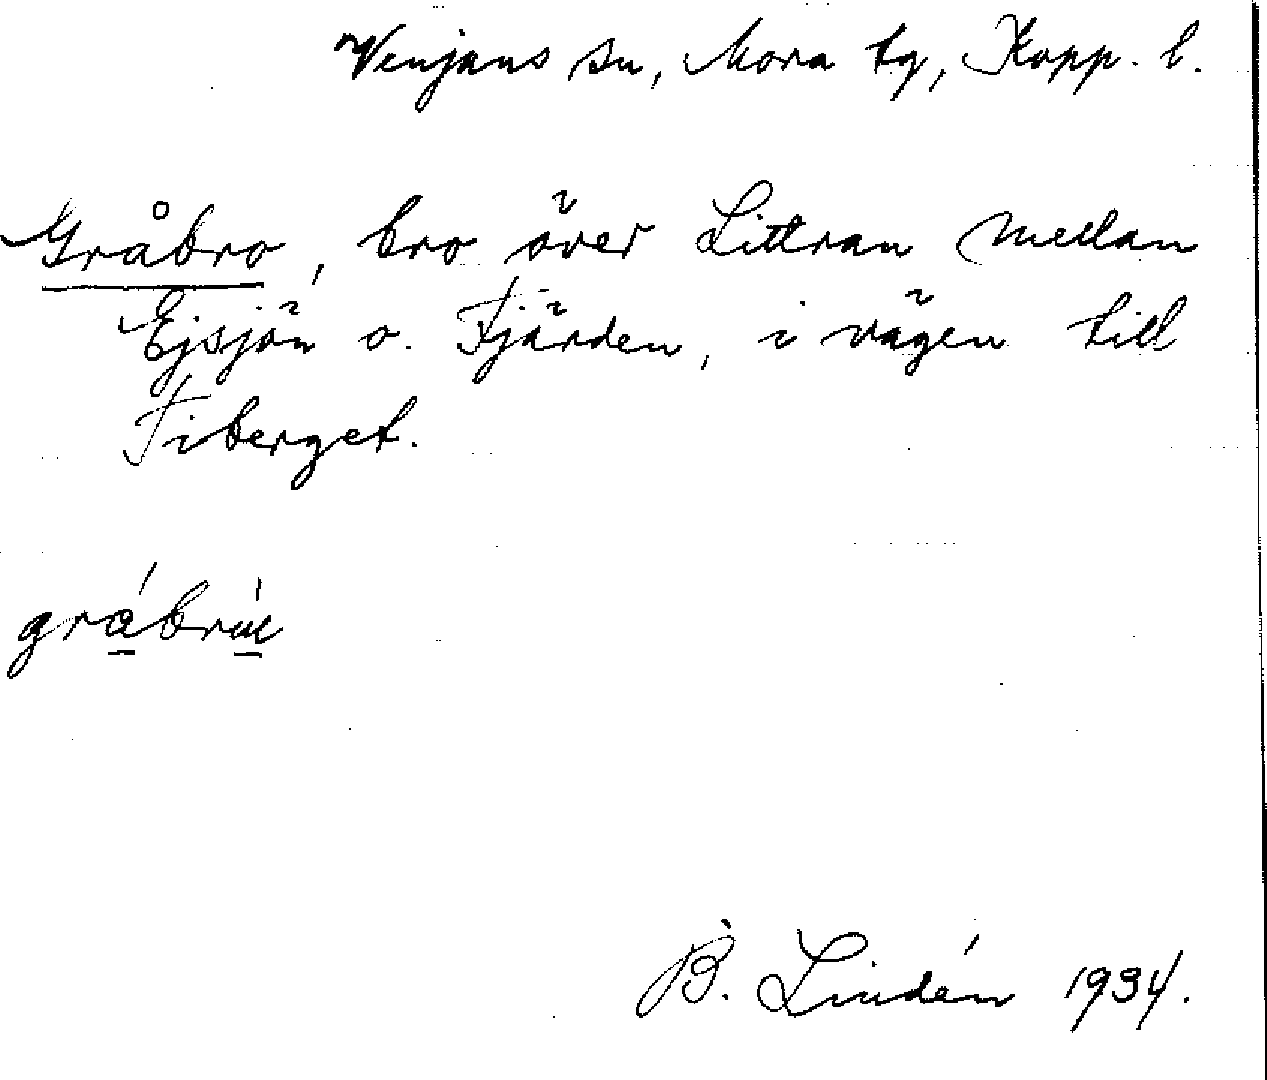 Venjans sn, Mora tg, Kopp. l.
Gråbro, bro över Littran mellan
Ejsjön o. Fjärden, i vägen till
Fiberget.
B. Lindén 1934.